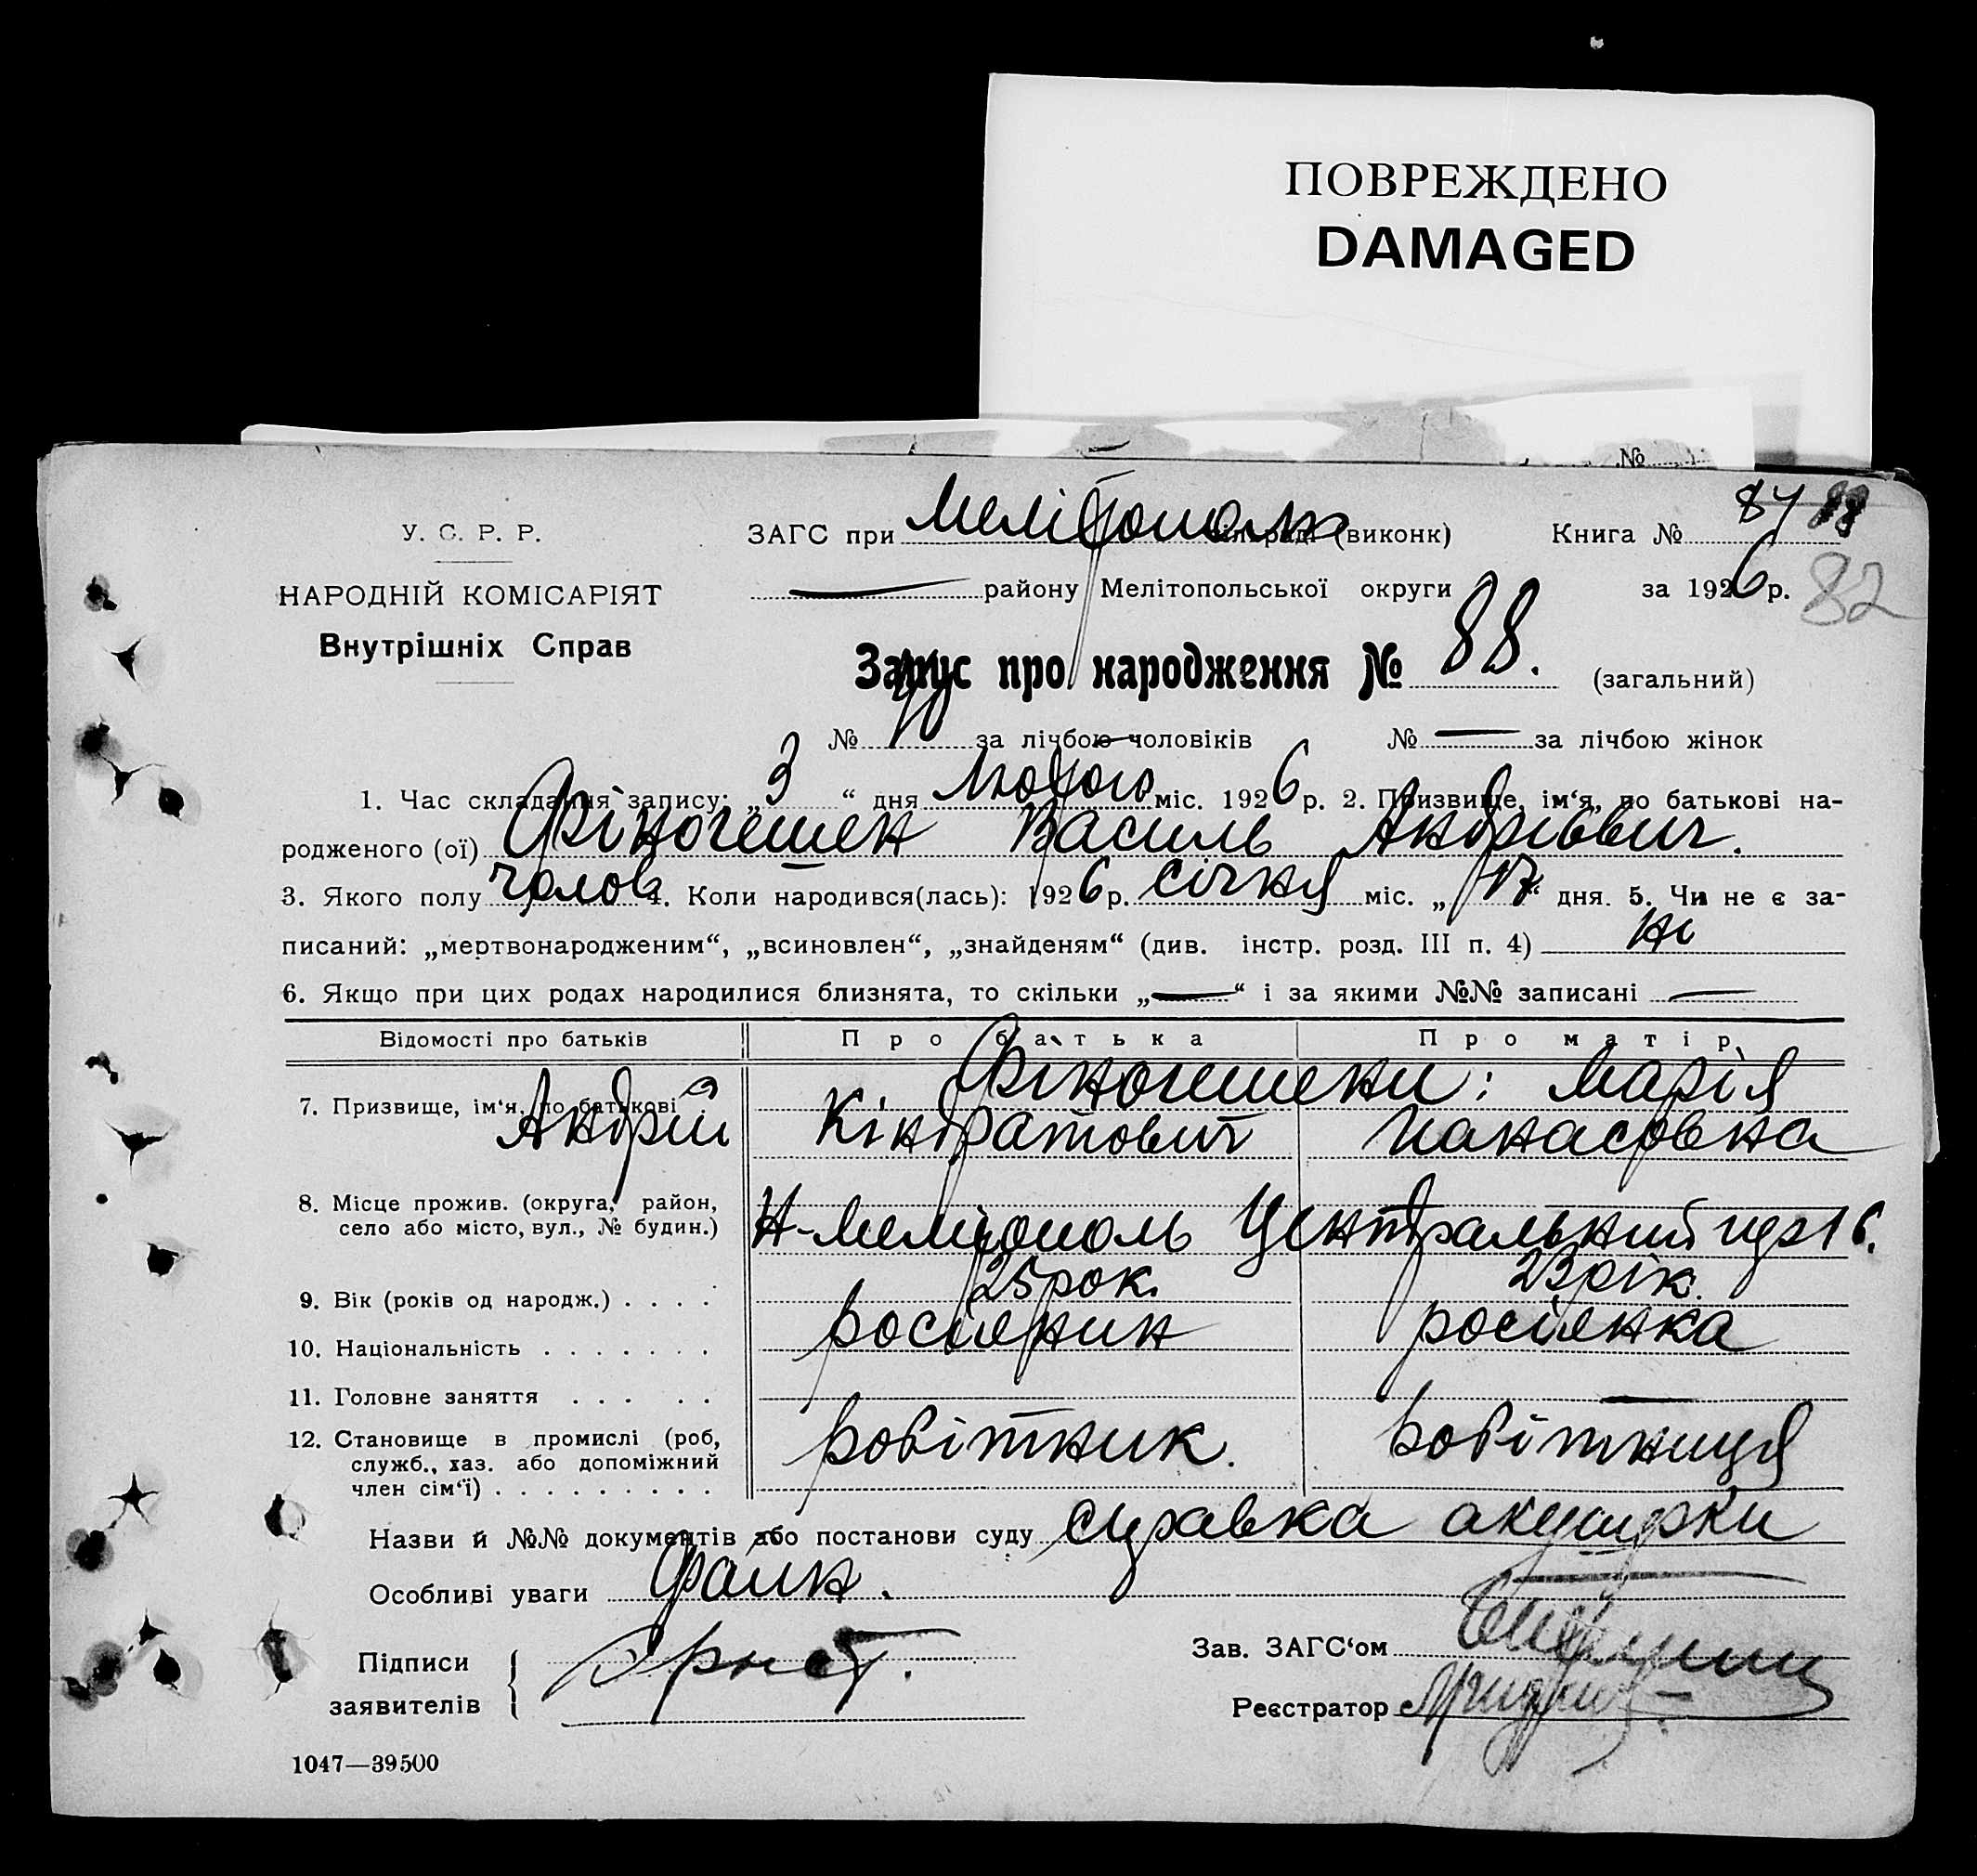 ПОВРЕЖДЕНО
DAMAGED
№
У. С. Р. Р.
НАРОДНІЙ КОМІСАРІЯТ
Внутрішніх Справ
ЗАГС при (виконк) Книга № 87 88
району Мелітопольської округи за 1926 р. 82
Запис про народження № 88. (загальний)
№ за лічбою чоловіків № — за лічбою жінок
1. Час складання запису: „3“ дня Лютого міс. 1926 р. 2. Призвище, ім‘я, по батькові на-
родженого (ої) Фіногешен Василь Андрієвич.
3. Якого полу чолов 4. Коли народився(лась): 1926 р. січня міс. „17“ дня. 5. Чи не є за-
писаний: „мертвонародженим“, „всиновлен“, „знайденям“ (див. інстр. розд. III п. 4) ні
6. Якщо при цих родах народилися близнята, то скільки „—“ і за якими №№ записані —
Відомості про батьків Про батька Про матір
Фіногешени: Марія
7. Призвище, ім‘я, по батькові
Андрій Кіндратович Панасовна
8. Місце прожив. (округа, район,
село або місто, вул., № будин.) Н-Мелітополь Центральний 16.
9. Вік (років од народж.) . . . . 25 рок. 23 рік.
10. Національність . . . . . . . росіянин росіянка
11. Головне заняття . . . . . —
12. Становище в промислі (роб,
служб., хаз. або допоміжний
член сім‘ї) . . . . . . . . . робітник. робітниця
Назви й №№ документів або постанови суду справка акушерки
Особливі уваги
Підписи
заявителів
Зав. ЗАГС‘ом
Реєстратор
1047—39500